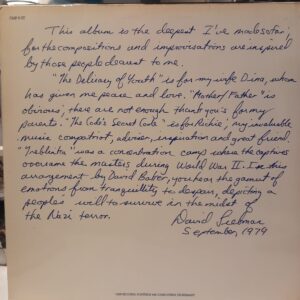 This album is the deepest I've made so far,
for the compositions and improvisations are inspired
by those people dearest to me.
"The Delicacy of Youth" is for my wife Dina, whom
has given me peace and love. "Mother/Father" is
obvious; there are not enough thank you's for my
parents. "The Code's Secret Code" is for Richie, my invaluable
music compatriot, adviser, inspiration and great friend.
"Treblinka" was a concentration camp where the captives
overcame the masters during World War II. In this
arrangement by David Baker, you hear the gamut of
emotions from tranquility to despair, depicting a
peoples will to survive in the midst of
the Nazi terror.
David Liebman
September, 1979